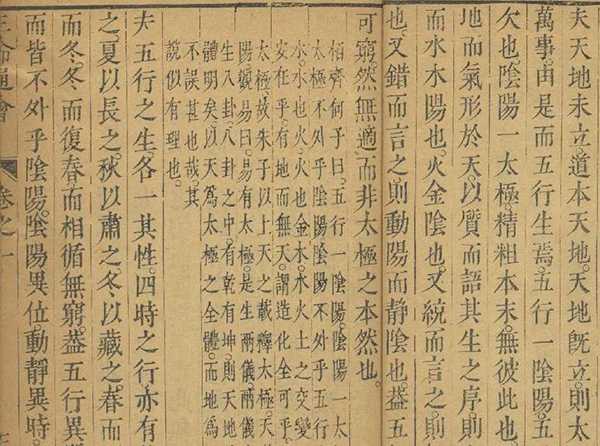 夫天地未立。道本天地。天地旣立。則太
萬事。由是而五行生焉。五行一陰陽。五
欠也。陰陽一太極。精粗本末。無彼此也
地而氣形於天。以質而語其生之序。則
而水木陽也。火金陰也。又統而言之。則
也。又錯而言之。則動陽而静陰也。葢五
可窮。然無適而非太極之本然也。
栢齊何子曰。五行一陰陽。陰陽一
太極。不外乎陰陽。陰陽不外乎五行
水。水也。火。火也。金。木。水。火。土之交變
安在乎。有地而無天。謂造化全可乎
太極。故朱子以上天之載釋太極。天
陽觀易曰。易有太極。是生兩儀。兩儀
生八卦。八卦之中。有乾有坤。則天地
體明矣。以天爲太極之全體。而地爲
不誤甚也哉。其
說似有理也。
夫五行之生。各一其性。四時之行。亦有
之。夏以長之。秋以肅之。冬以藏之。春而
而冬。冬而復春。而相循無窮。葢五行異
而皆不外乎陰陽。陰陽異位。動靜異時。
三命通會 卷之一